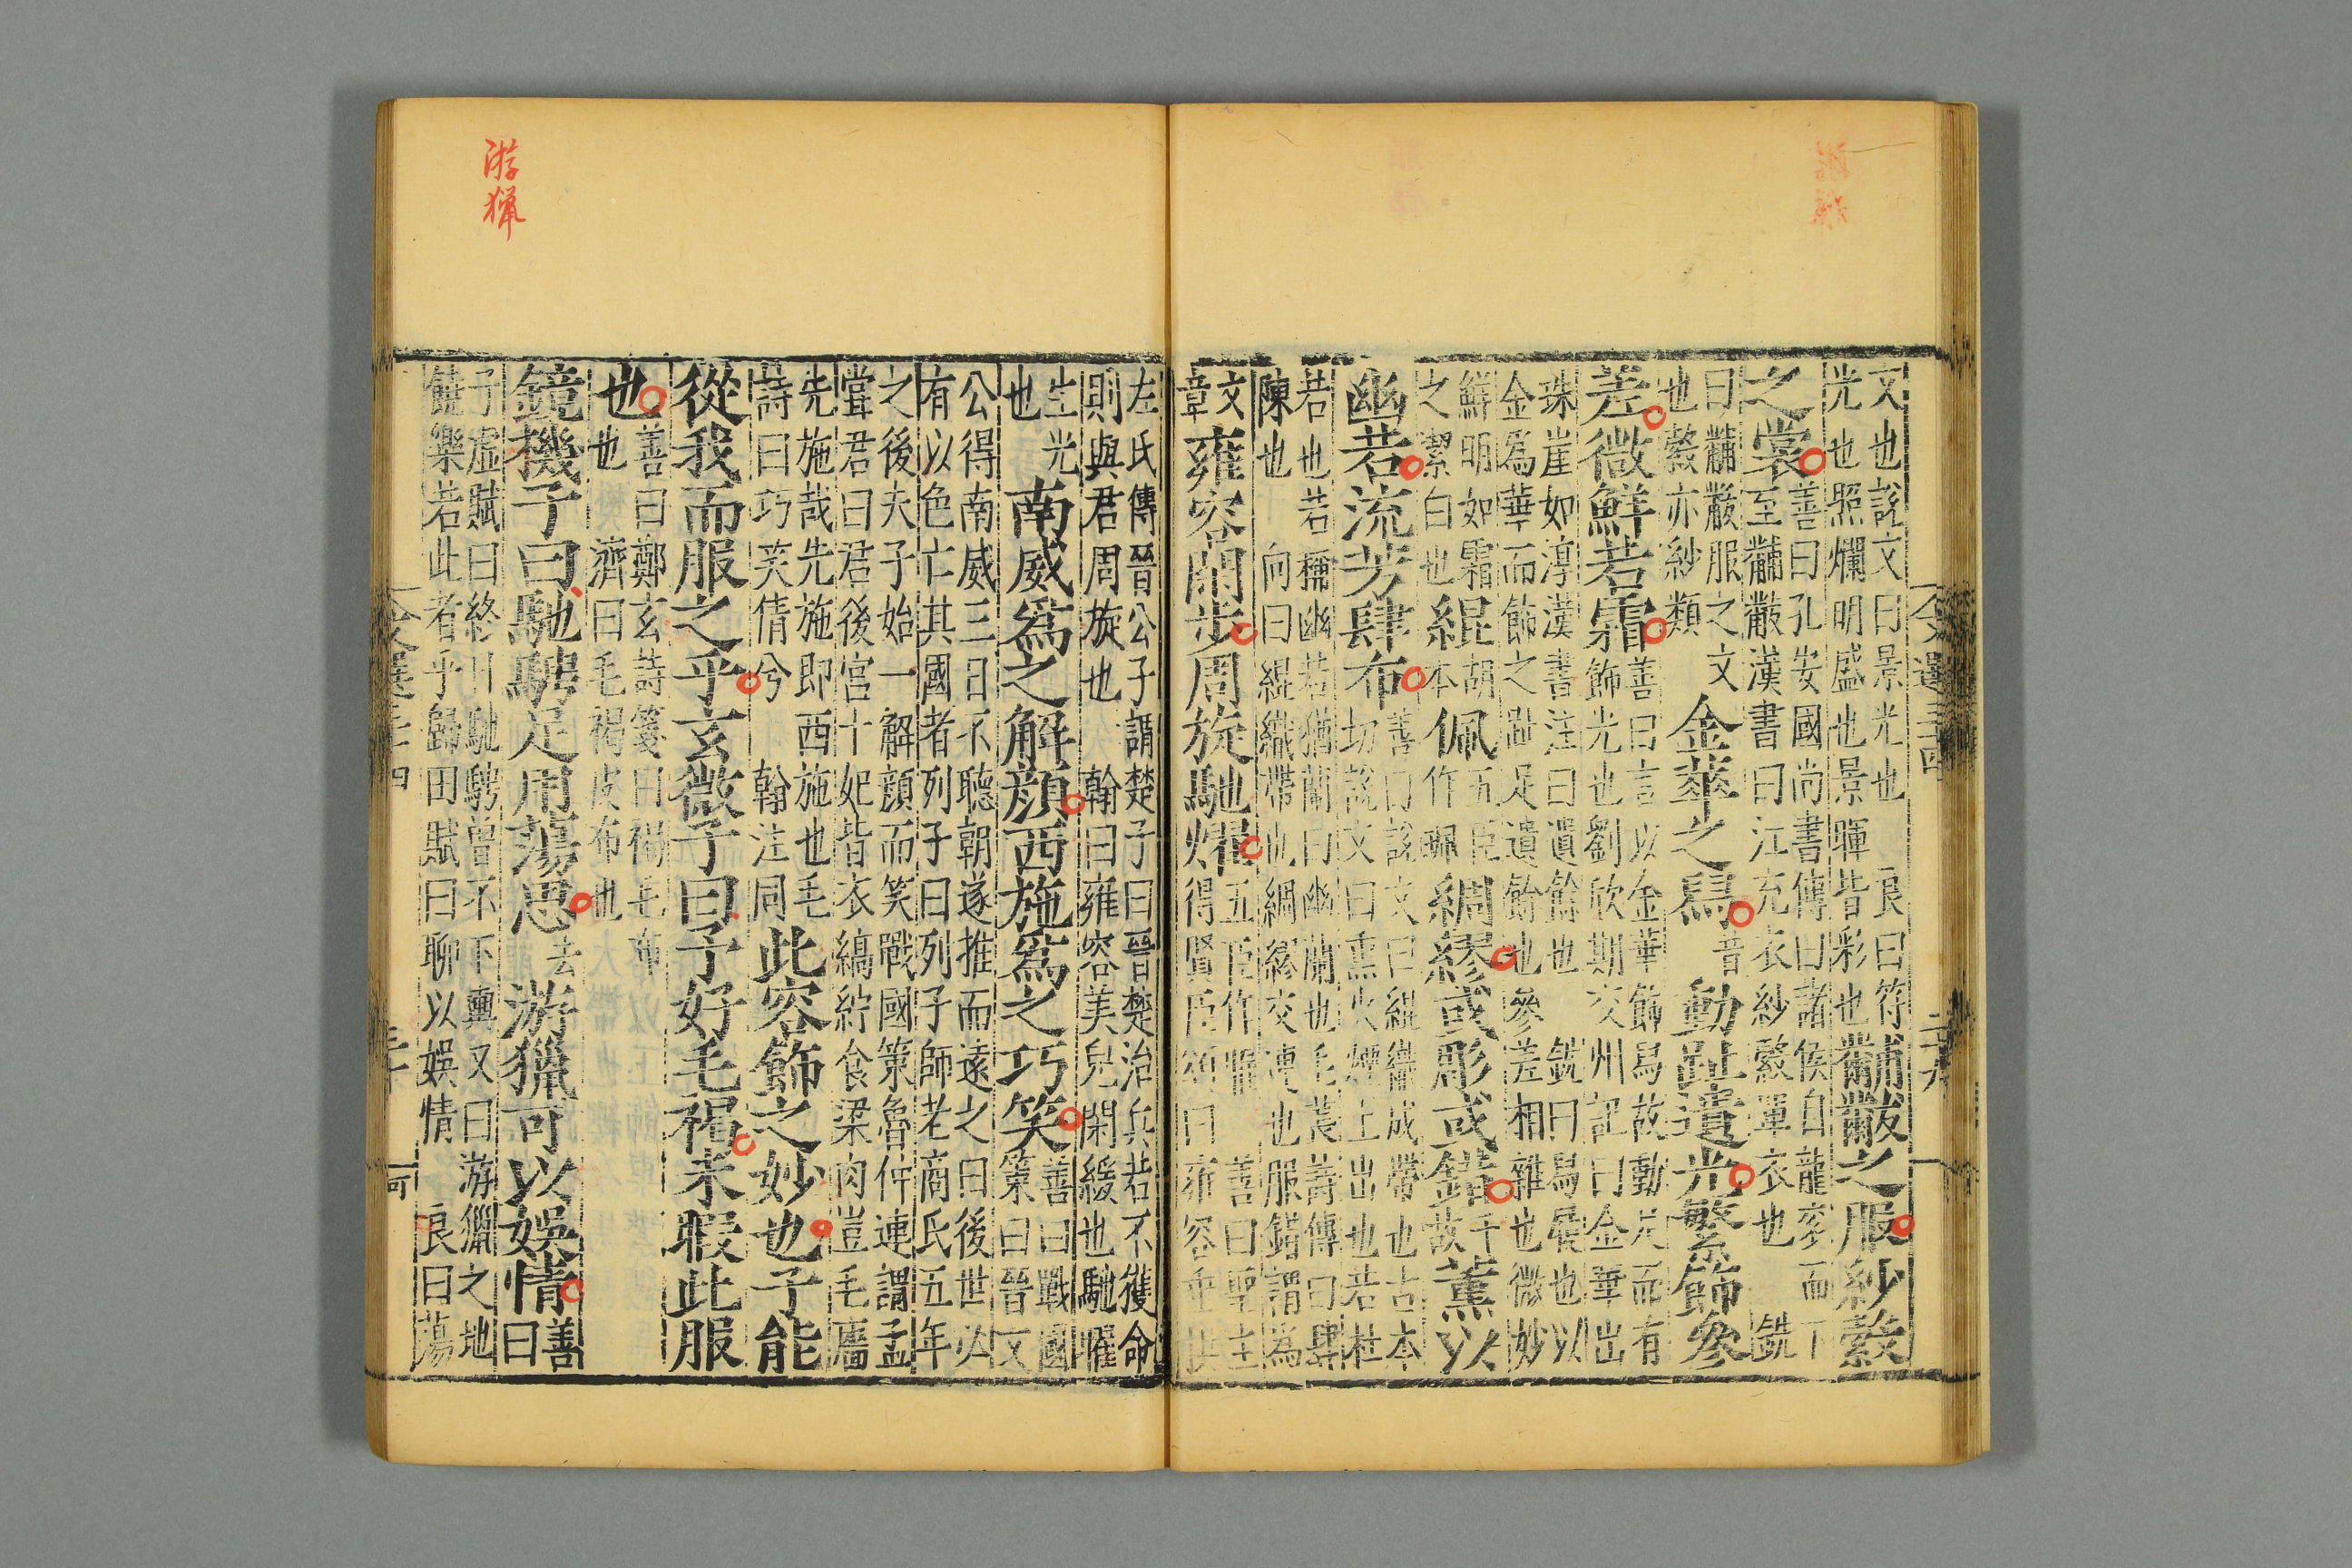 文也説文曰景光也　良曰符
光也照爛明盛也景暉皆彩也
黼黻之服紗縠
之裳
善曰孔安國尚書傳曰諸侯自龍袞而下
至黼黻漢書曰江充衣紗縠單衣也　銑
曰黼黻服之文
也縠亦紗類
金華之舄
昔
動趾遺光繁飾參
差微鮮若霜
善曰言以金華飾舄故動足而有
飾光也劉欣期交州記曰金華出
珠崖如淳漢書注曰遺餘也　銑曰舄屐也以
金為華而飾之趾足遺餘也參差相雜也微妙
鮮明如霜
之絜白也
緄
胡
本
佩
五臣
作珮
綢繆或彫或錯
千
故
薰以
幽若流芳肆布
善曰說文曰緄織成帶也古本
切說文曰熏火煙上出也若杜
若也若稱幽若猶蘭曰幽蘭也毛萇詩傳曰肆
陳也　向曰緄織帶也綢繆交連也服錯謂為
文
章
雍容閒步周旋馳燿
五臣作曜　善曰聖主
得賢臣頌曰雍容垂拱
左氏傳晉公子謂楚子曰晉楚治兵若不獲命
則與君周旋也　翰曰雍容美皃閑緩也馳曜
生光
也
南威為之解顔西施為之巧笑
善曰戰國
策曰晉文
公得南威三日不聽朝遂推而遠之曰後世必
有以色亡其國者列子曰列子師老商氏五年
之後夫子始一解顔而笑戰國策魯仲連謂孟
嘗君曰君後宮十妃皆衣縞紵食粱肉豈毛廧
先施哉先施即西施也毛
詩曰巧笑倩兮　翰注同
此容飾之妙也子能
從我而服之乎玄微子曰予好毛褐未暇此服
也
善曰鄭玄詩箋曰褐毛布
也　濟曰毛褐皮布也
鏡機子曰馳騁足用蕩思
去
游獵可以娛情
善
曰
子虛賦曰終日馳騁曾不下輿又曰游獵之地
饒樂若此者乎歸田賦曰聊以娛情　良曰蕩
游獵